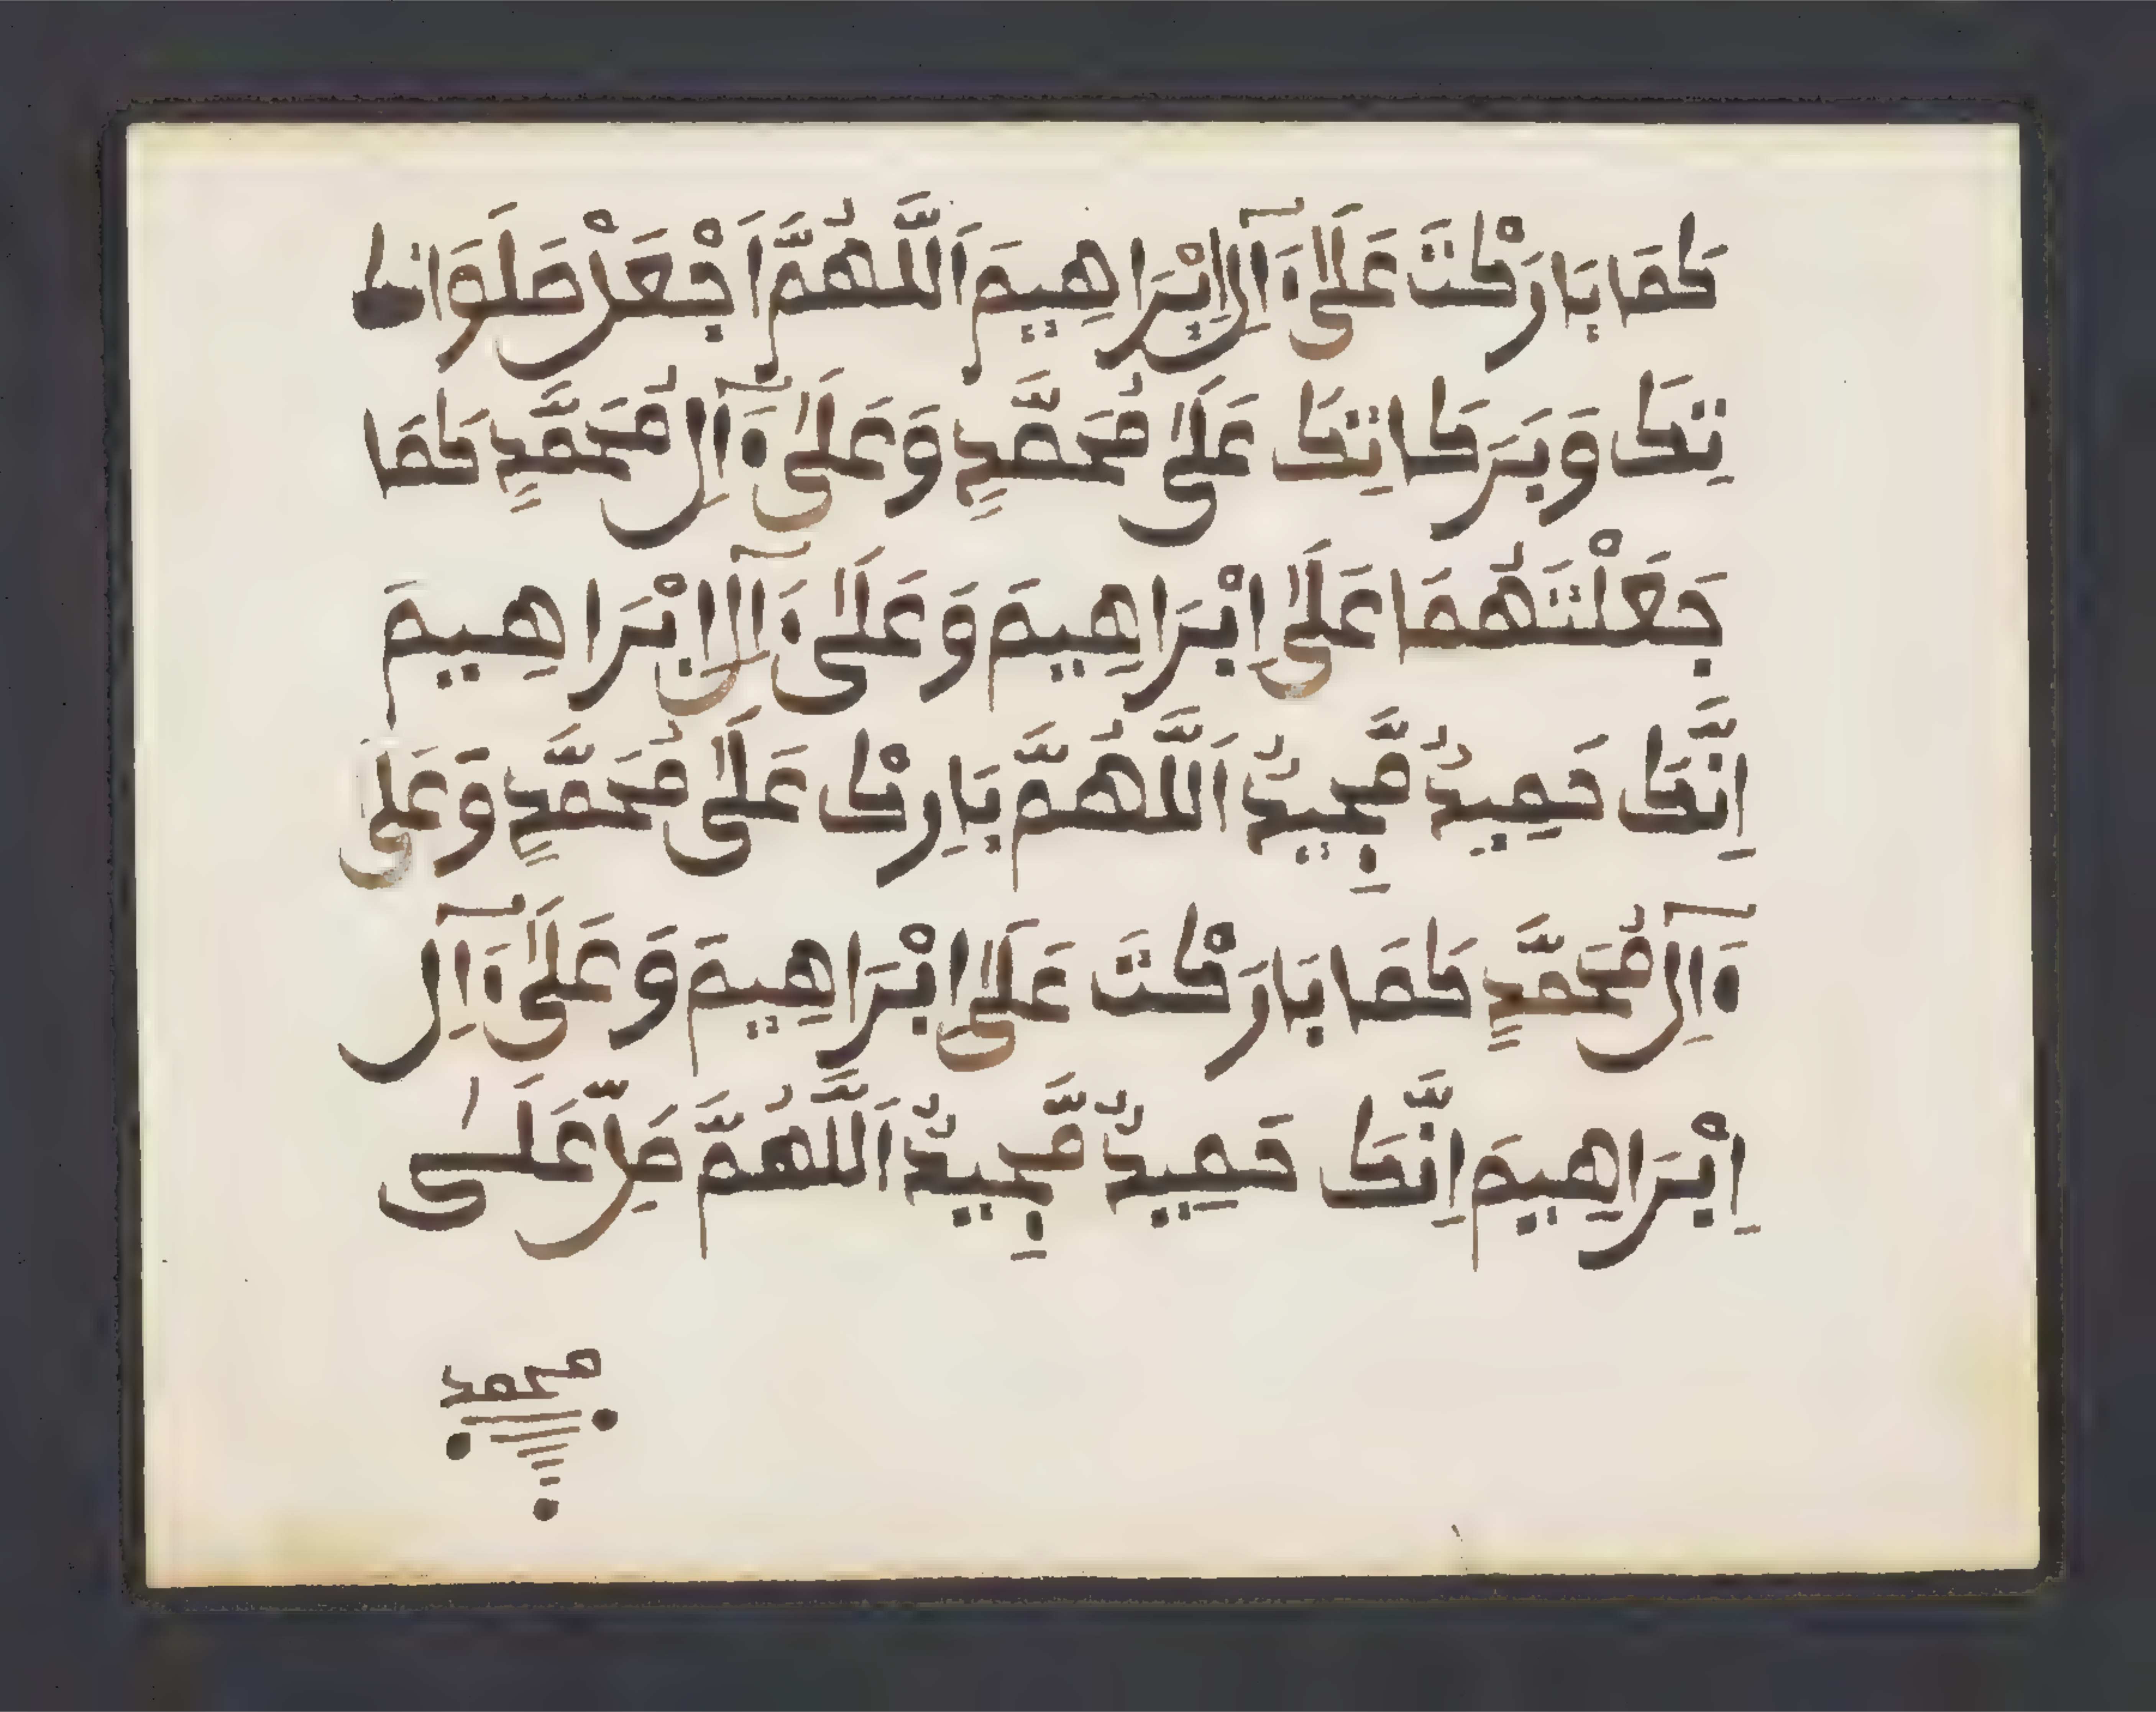 كَمَا بَارَكْتَ عَلَىٰٓ ءَالِ إِبْرَاهِيمَ اَللَّهُمَّ اَجْعَلْ صَلَوَاتـ
تِكَ وَبَرَكَاتِكَ عَلَىٰ مُحَمَّدٍ وَعَلَىٰٓ ءَالِ مُحَمَّدٍ كَمَا
جَعَلْتَهُمَا عَلَىٰ اِبْرَاهِيمَ وَعَلَىٰٓ ءَالِ ابْرَاهِيمَ
اِنَّكَ حَمِيدٌ مَّجِيدٌ اَللَّهُمَّ بَارِكْ عَلَىٰ مُحَمَّدٍ وَعَلَىٰ
ءَالِ مُحَمَّدٍ كَمَا بَارَكْتَ عَلَىٰ اِبْرَاهِيمَ وَعَلَىٰٓ ءَالِ
اِبْرَاهِيمَ اِنَّكَ حَمِيدٌ مَّجِيدٌ اَللَّهُمَّ صَلِّ عَلَىٰ
محمد